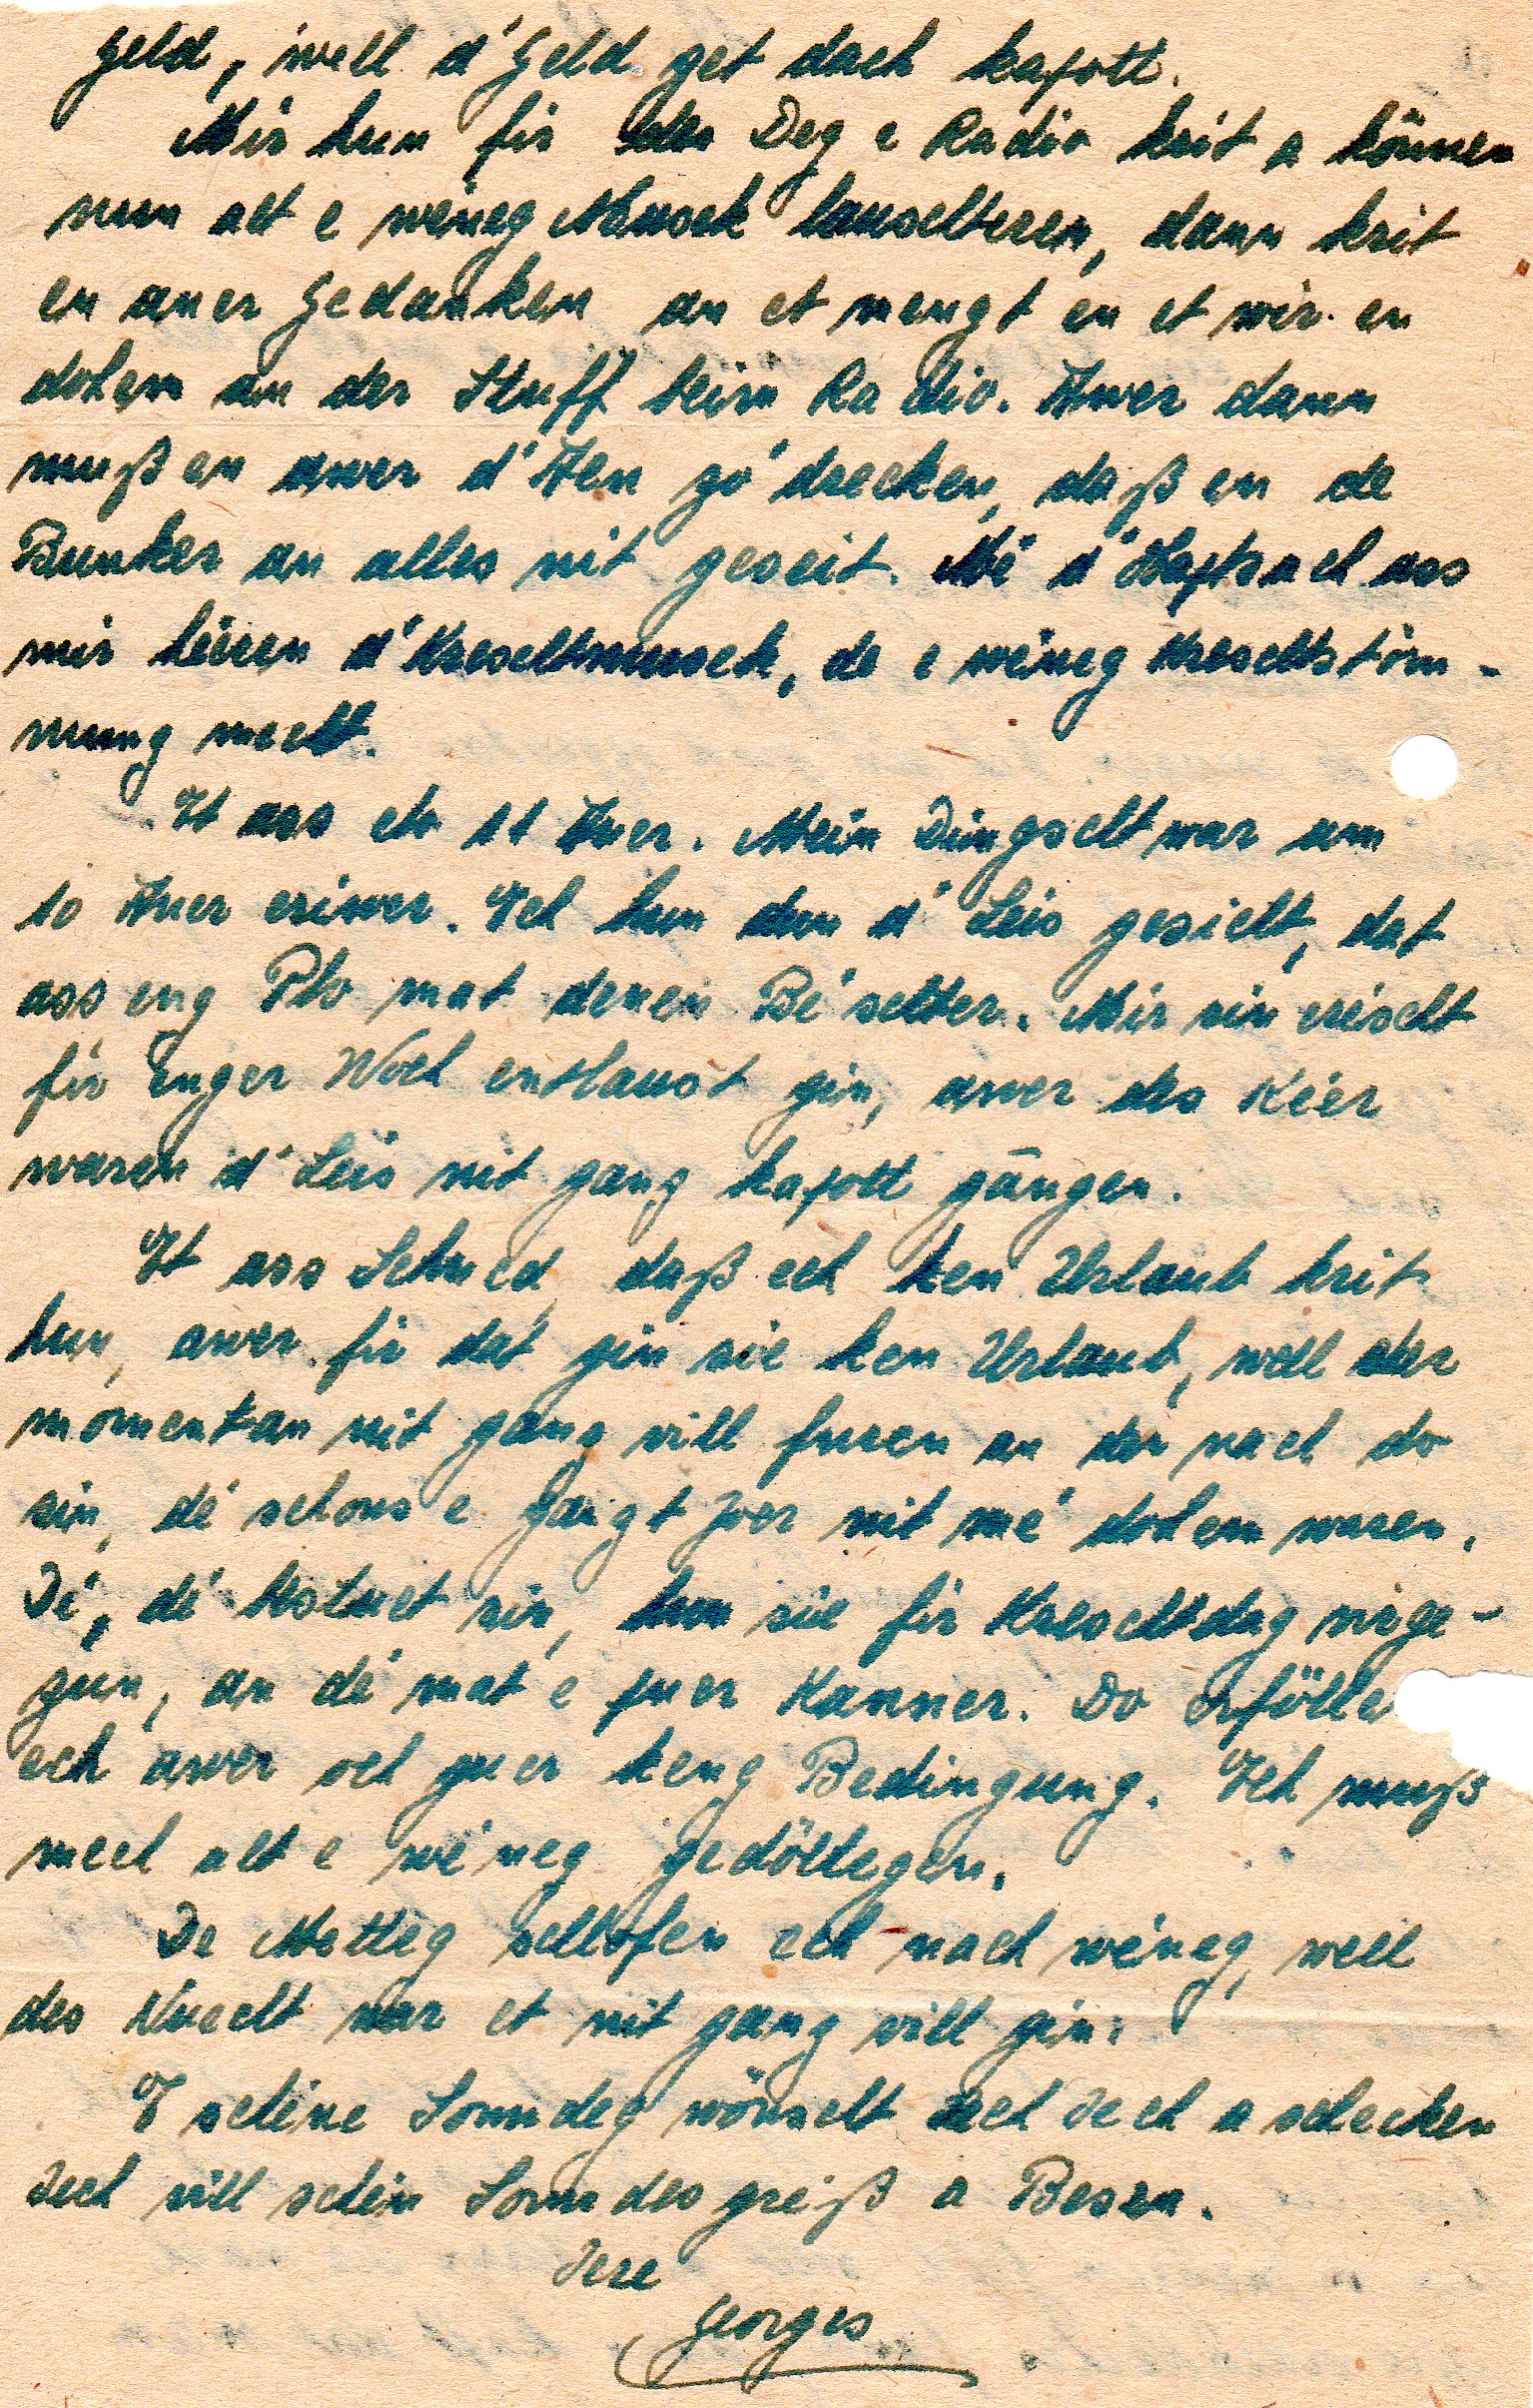 Geld, well d'Geld get dach kapott.
Mir hun fir des Deg e Radio krit a können
nun alt e wéneg Musek lauschteren, dann krit
en aner Gedanken an et mengt en et wir en
dohem an der Stuff beim Radio. Awer dann
muß en awer d'Aen zó drecken, daß en de
Bunker an alles nit geseit. Mé d'Haptsach ass
mir héieren d'Kreschtmusek, de e wéneg Kreschtstöm-
mung mecht.
Et ass elo 11 Auer. Mein Dingscht war um
10 Auer eriwer. Ech hun dun d'Leis gesicht, dat
ass eng Plo mat denen Bé'schter. Mir sin éischt
fir enger Woch entlaust gin, awer des Kéier
waren d'Leis nit gang kapott gängen.
Et ass Schued, daß ech ken Urlaub krit
hun, awer fir dat gin sie ken Urlaub, well der
momentan nit gang vill fueren an der nach do
sin, dé schons e gangt Joer nit mé dohem waren.
Dé, dé bestuet sin, hun sie fir Kreschtdag virge-
zun, an dé mat e puer Kanner. Do erfölle
ech awer och guer keng Bedingung. Ech muß
mech alt e wéneg gedöllegen.
De Metteg schlofen ech nach wéneg, well
des Nuecht war et nit gang vill gin.
E schéne Sonndeg wönscht ech Iech a schecken
Iech vill schéin Sonndesgréiß a Besen.
Iere
Georges